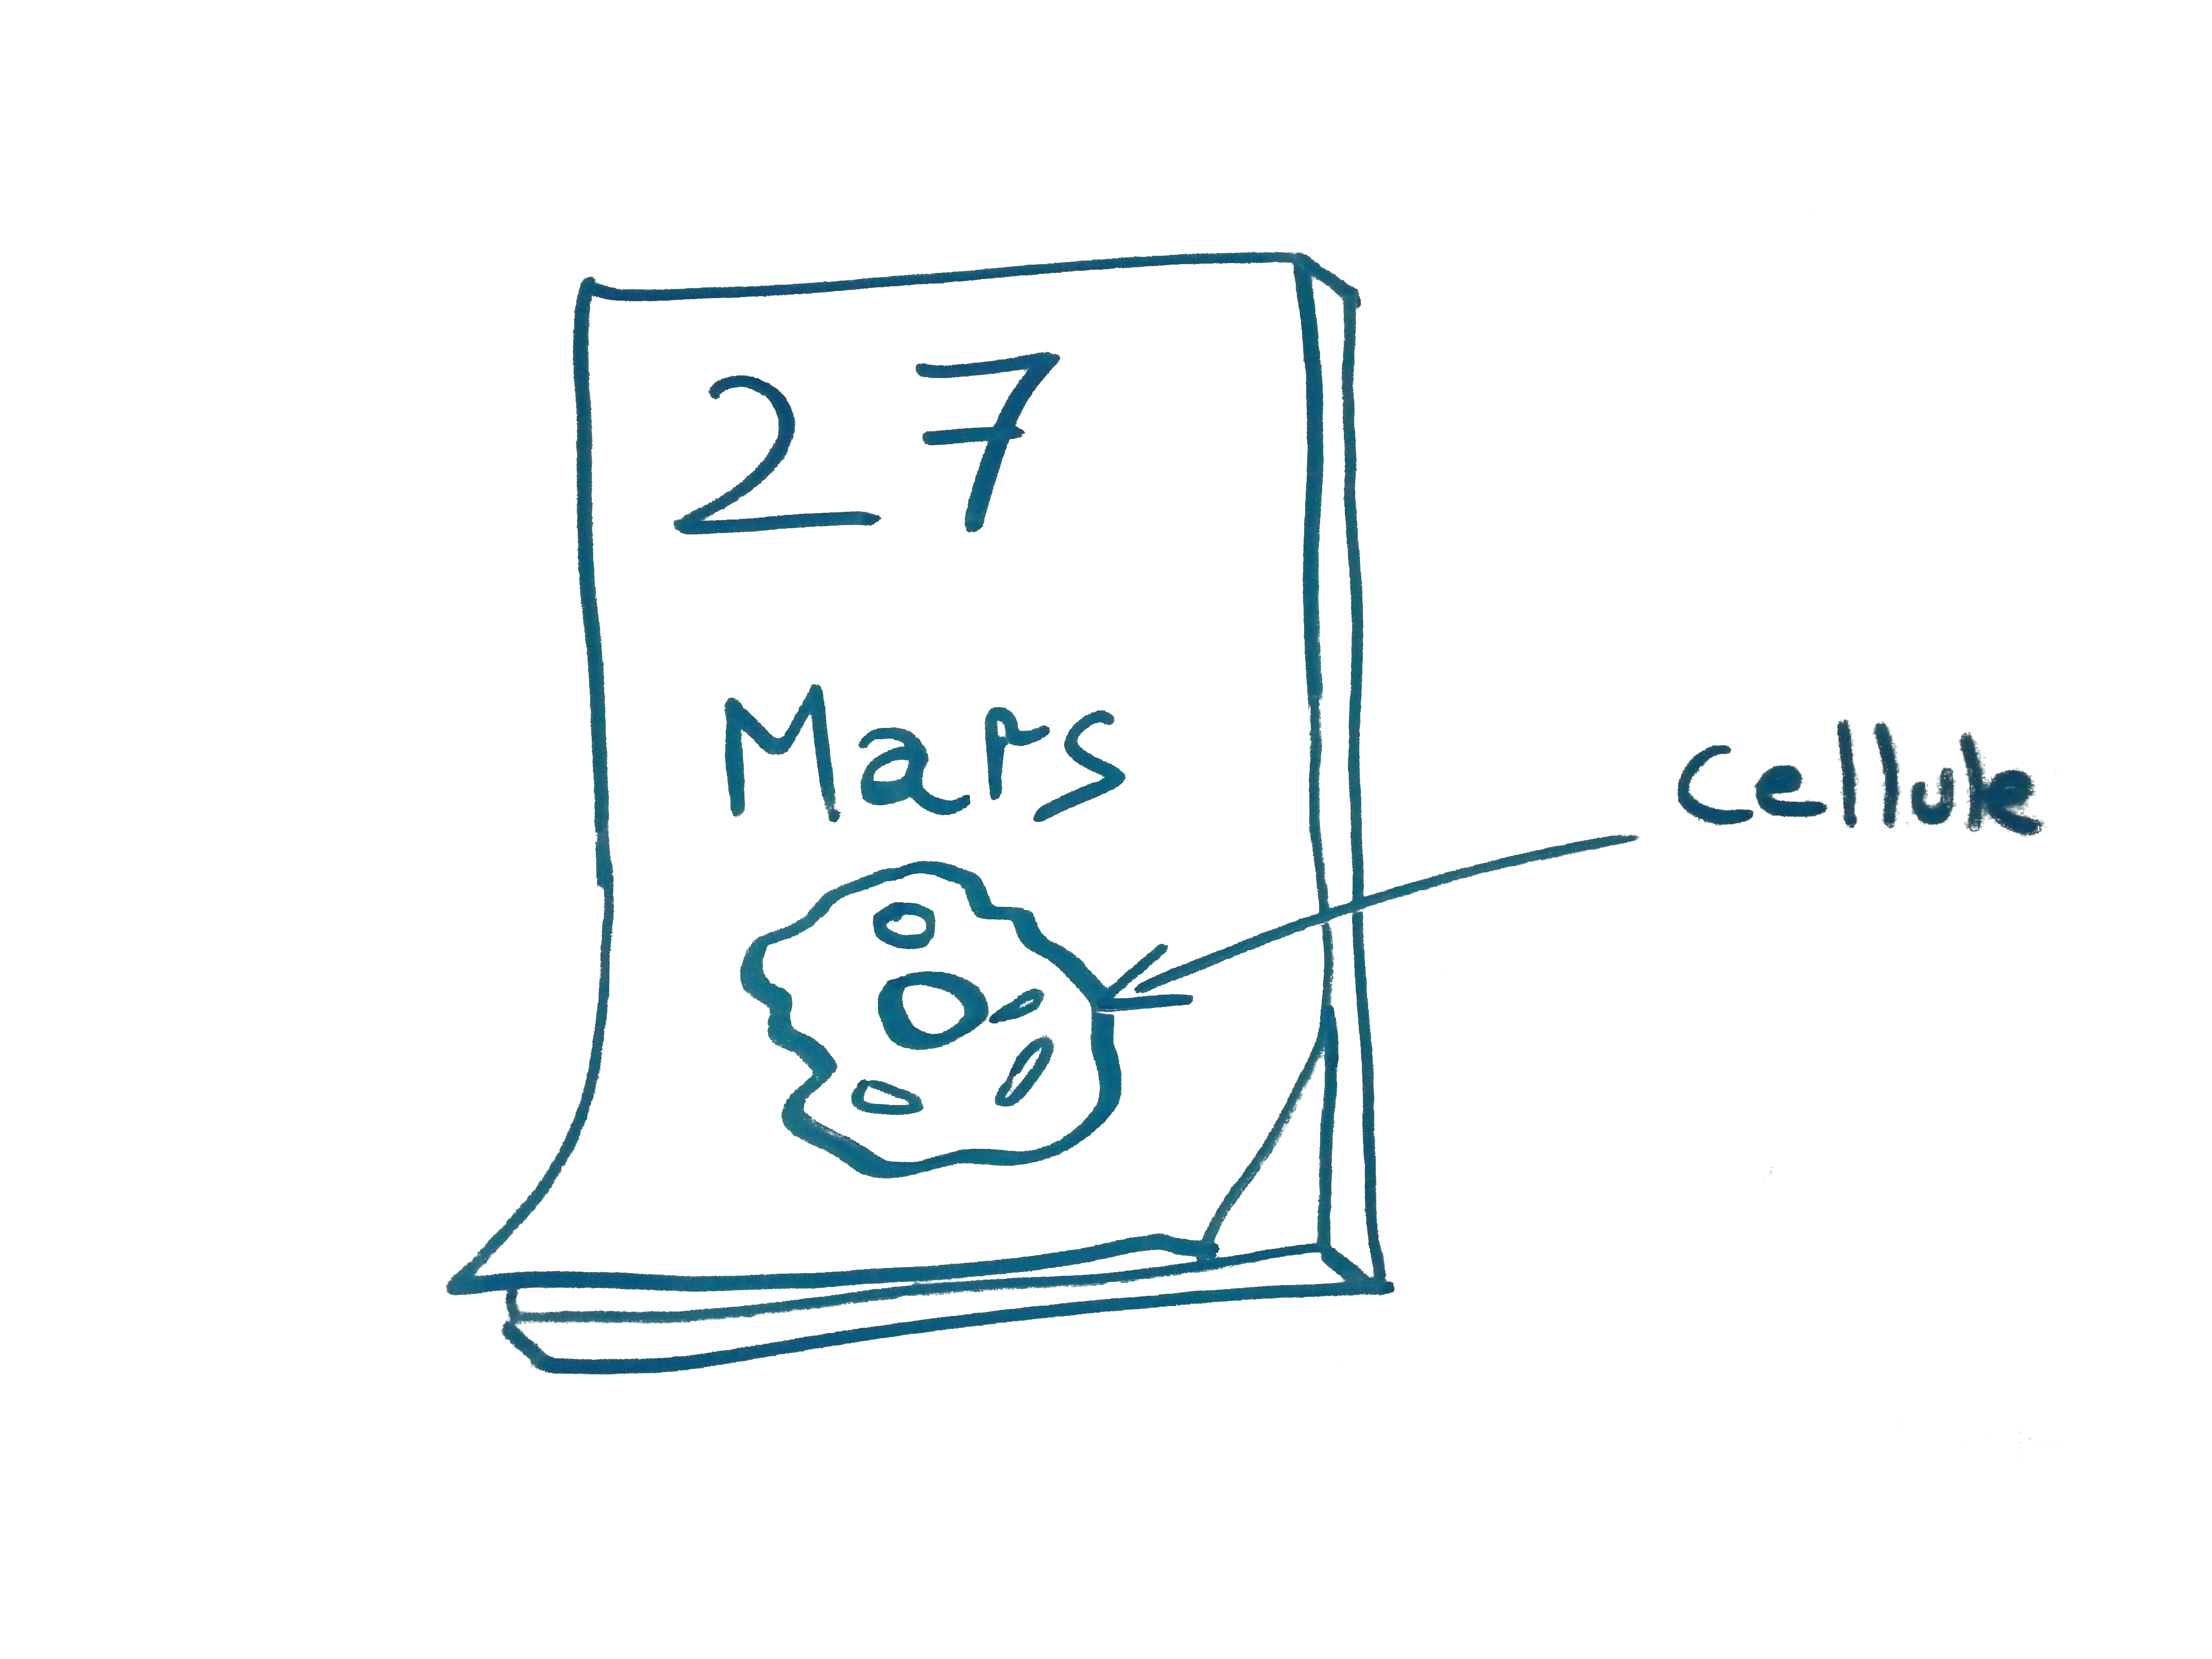 27
Mars
cellule